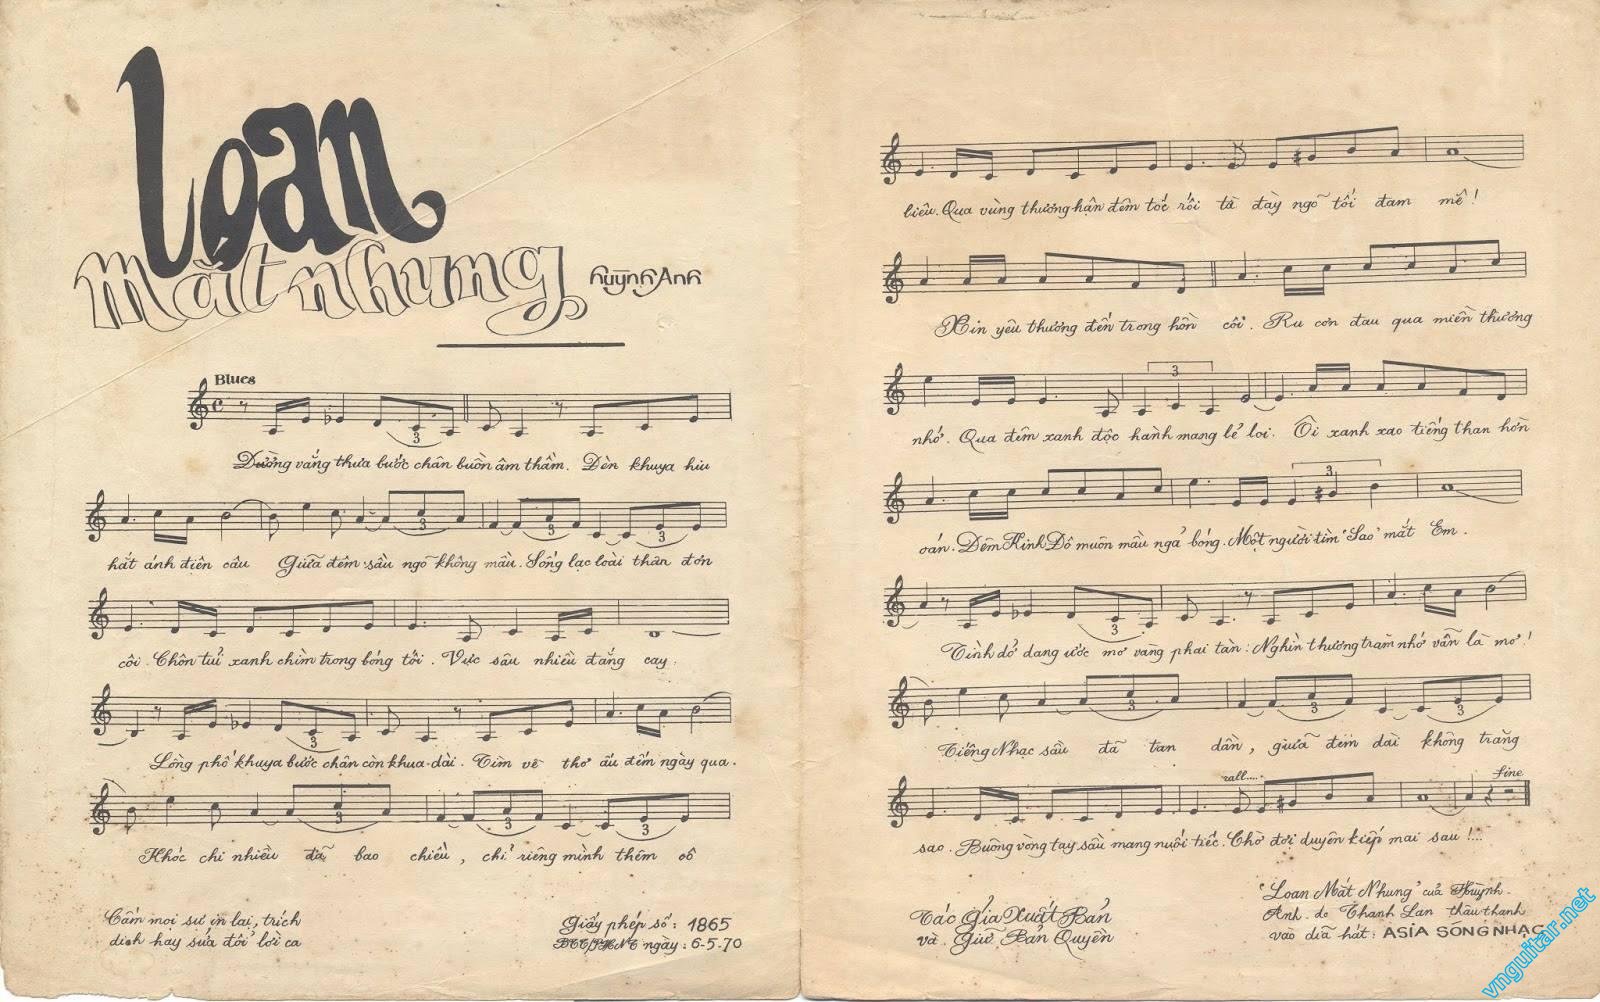 Loan
mắt nhung
Huỳnh Anh
Blues
Đường vắng thưa bước chân buồn âm thầm. Đèn khuya hiu
3
hắt ánh điện câu Giữa đêm sầu ngõ không mầu. Sống lạc loài thân đơn
3 3 3
côi. Chôn tuổi xanh chìm trong bóng tối. Vực sâu nhiều đắng cay.
Lòng phố khuya bước chân còn khua dài. Tìm về thơ ấu đếm ngày qua.
3
Khóc chi nhiều đã bao chiều, chỉ riêng mình thêm cô
3 3 3
Cấm mọi sự in lại, trích
dịch hay sửa đổi lời ca
Giấy phép số: 1865
BTT/PHNT ngày: 6-5-70
liêu. Qua vùng thương hận đêm tóc rối tà đày ngõ tối đam mê!
Xin yêu thương đến trong hồn côi. Ru cơn đau qua miền thương
3
nhớ. Qua đêm xanh độc hành mang lẻ loi. Ôi xanh xao tiếng than hờn
3
oán. Đêm Kinh Đô muôn mầu ngả bóng. Một người tìm "Sao" mắt Em.
Tình dở dang ước mơ vàng phai tàn: Nghìn thương trăm nhớ vẫn là mơ!
3
Tiếng Nhạc sầu đã tan dần, giữa đêm dài không trăng
3 3 3
rall..... fine
sao. Buông vòng tay sầu mang nuối tiếc. Chờ đợi duyên kiếp mai sau!...
Tác Giả Xuất Bản
và Giữ Bản Quyền
"Loan Mắt Nhung" của Huỳnh-
Anh do Thanh Lan thâu thanh
vào dĩa hát: ASIA SÓNG NHẠC
vnguitar.net